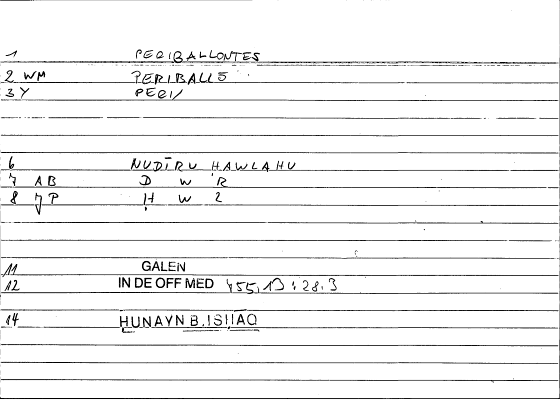 1 PERIBALLONTES
2 WM PERIBALL5
3 Y PERI/
6 NUDĪRU HAWLAHU
7 AB D W R
8 JP Ḥ W 2
11 GALEN
12 IN DE OFF MED 455,13:28.3
14 ḤUNAYN B.ISḤĀQ